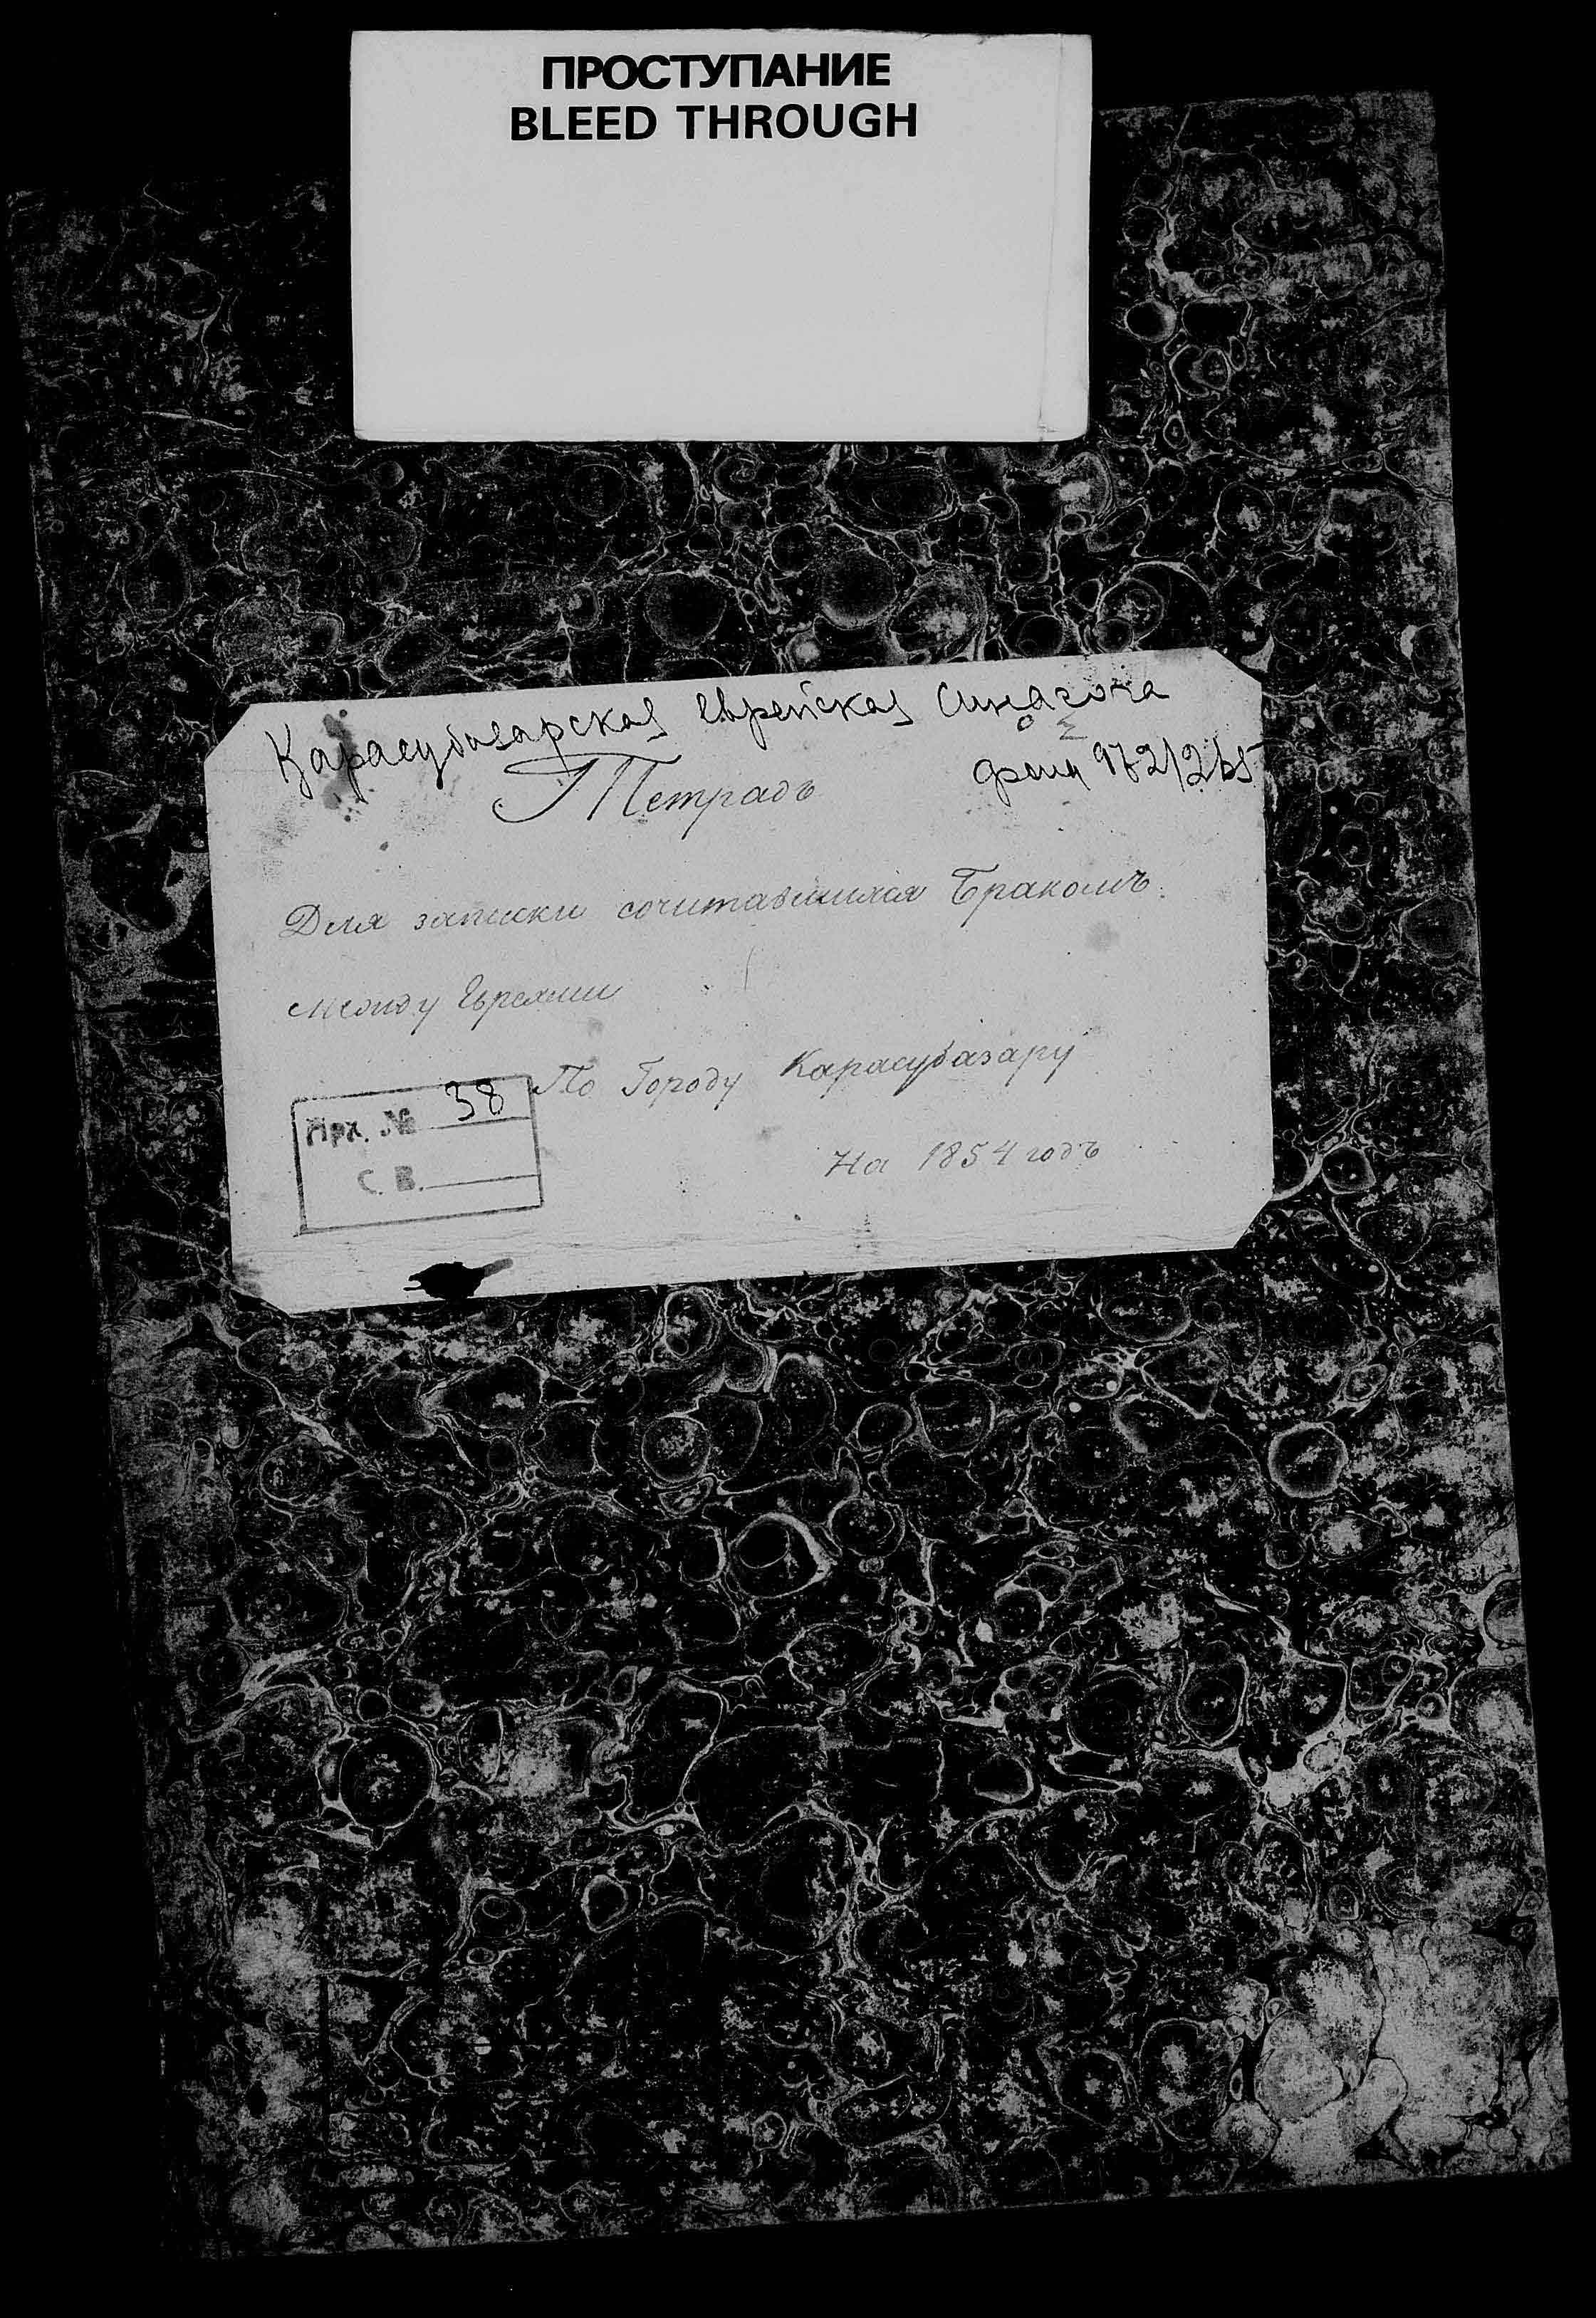 ПРОСТУПАНИЕ
BLEED THROUGH
Карасубазарская еврейская синагога
Тетрадь
Для записки сочитавшихся Бракомъ
между Евреями
По Городу Карасубазару
Арх. № 38
С. В.
На 1854 годъ